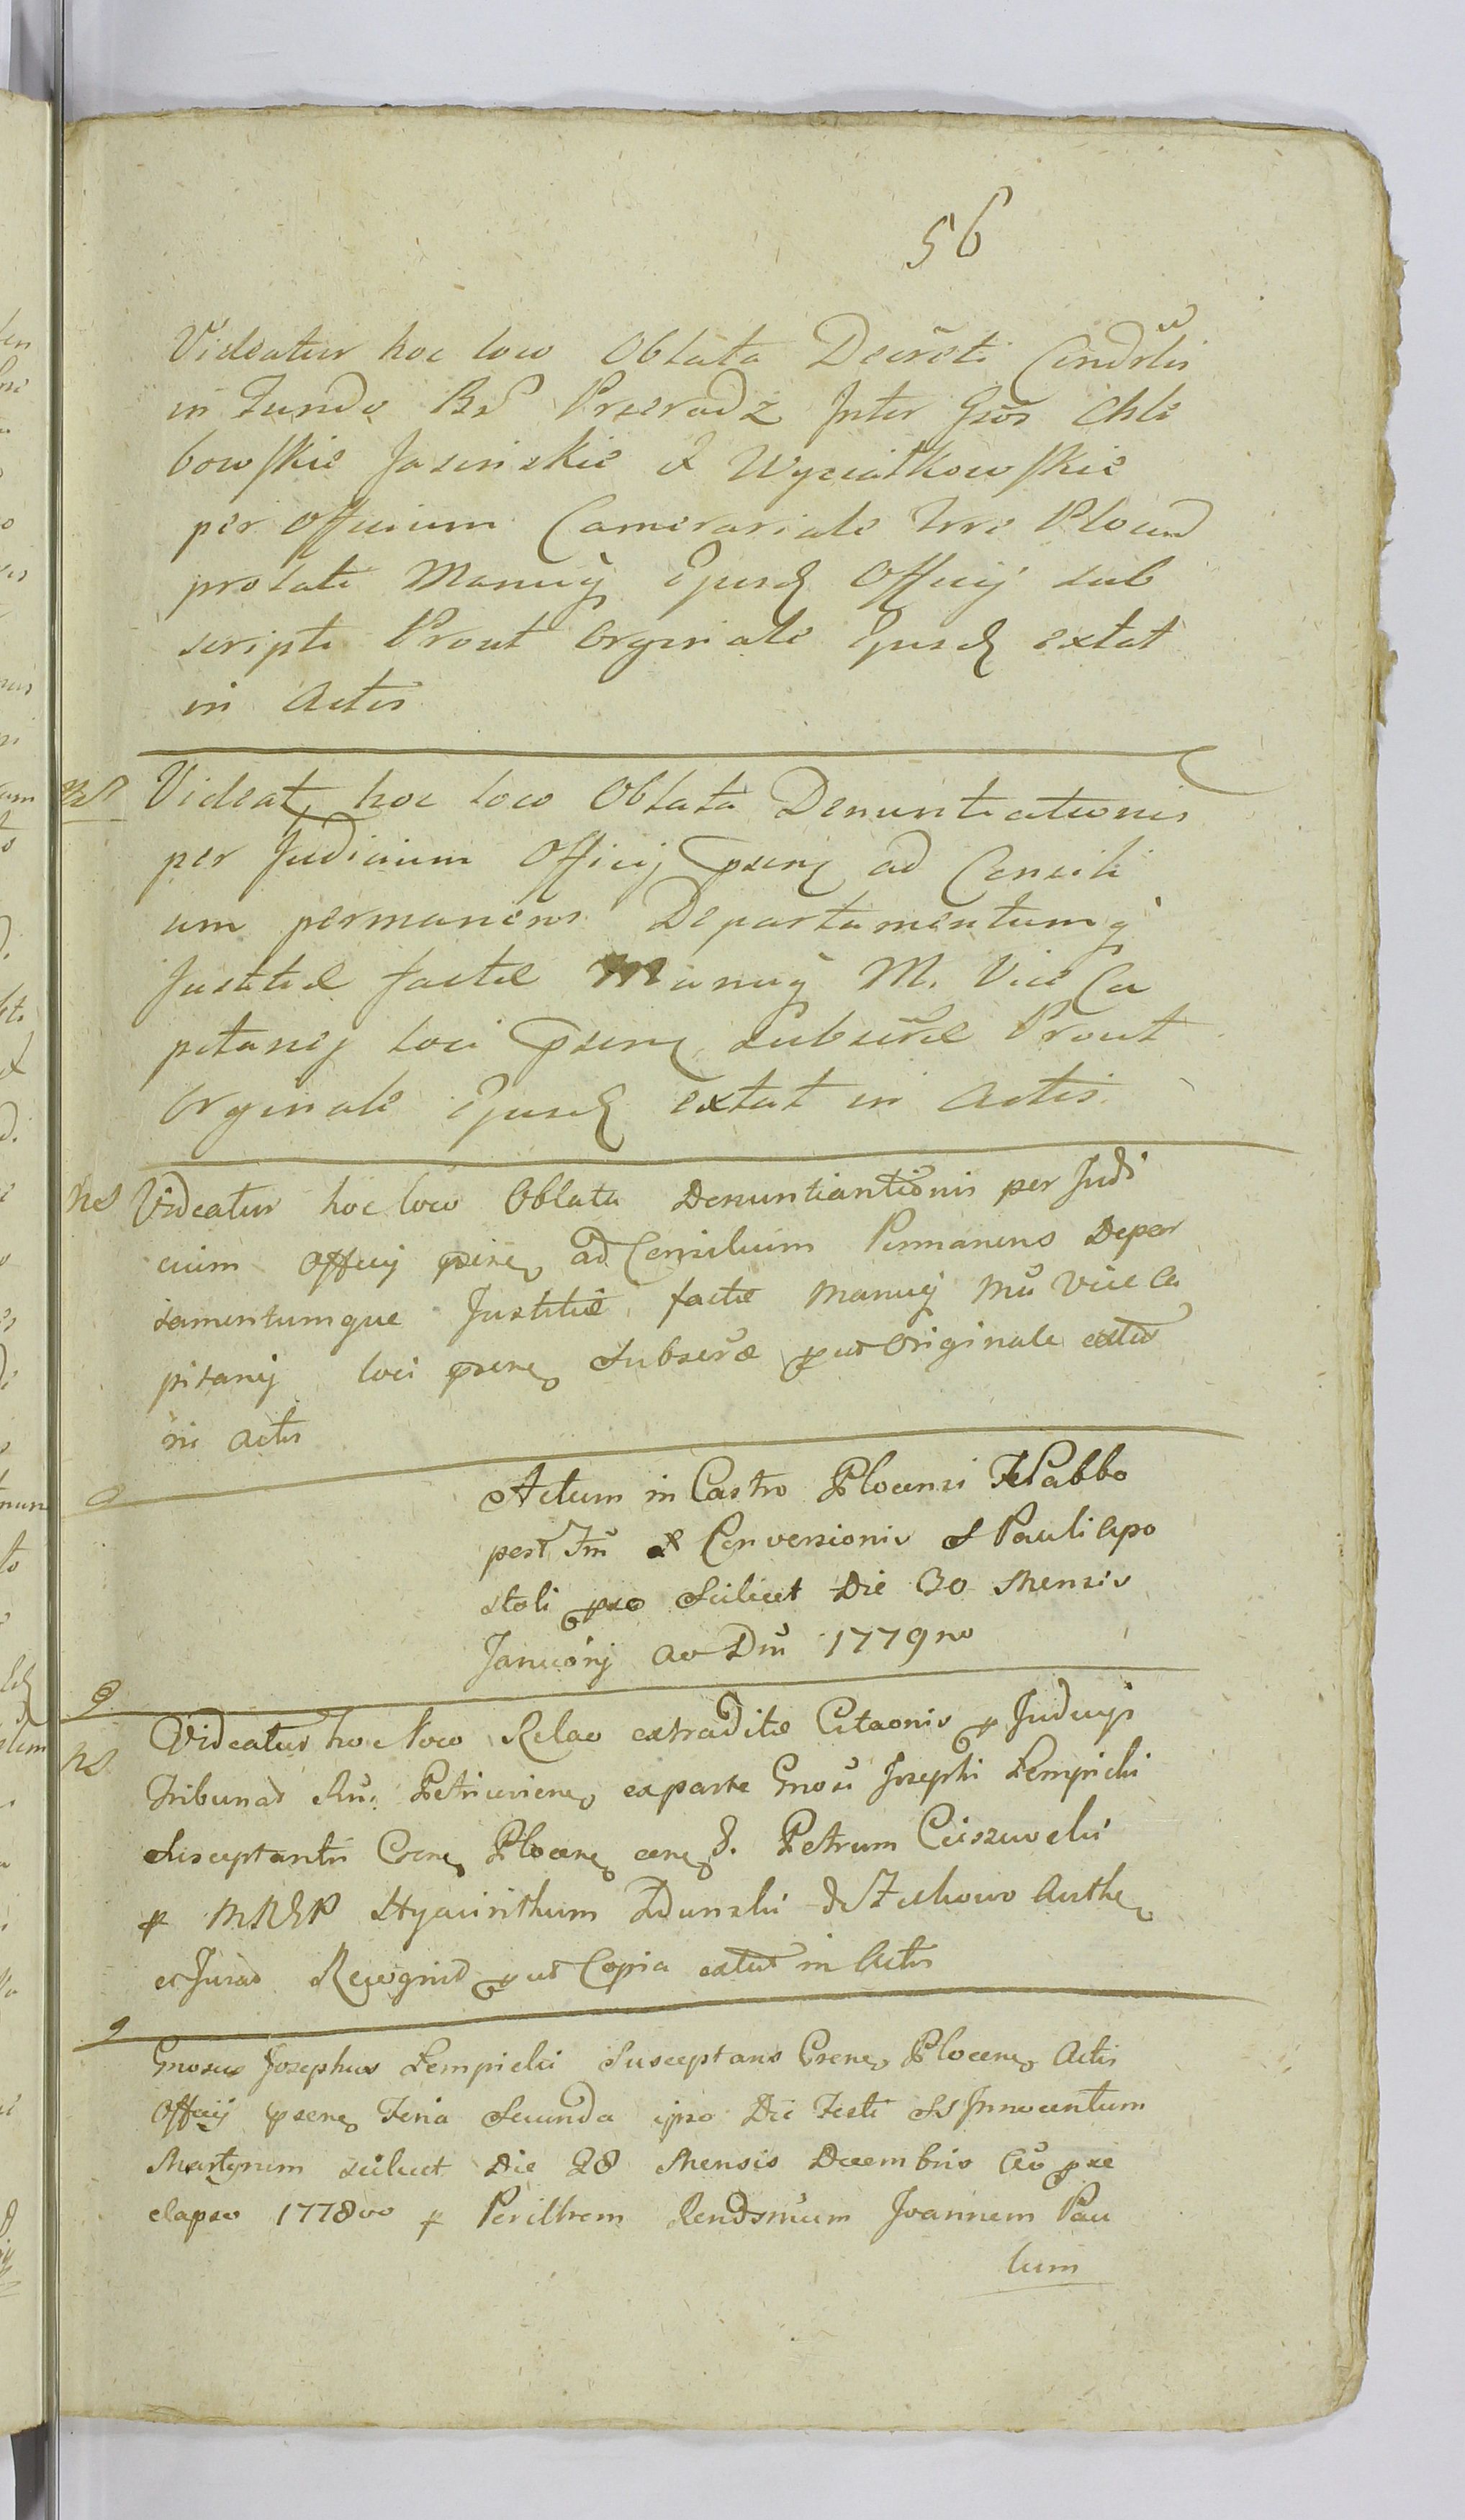 56
Videatur hoc loco Oblata Decreti Condrlis
in Fundo Br Przeradz Inter Gsos Chle
bowskie Jasinskie & Wyziatkowskie
per Officium Camerariale Trre Plocen
prolati Manuq Ejusd Officij sub
scripti Prout Orginale Ejusd extat
in Actis
Ns Videat hoc loco Oblata Denuntiationis
per Judicium Officij psens ad Consili
um permanens Departamentumq
Justitiæ factæ Manuq M. Vice Ca
pitanej loci psens Subscræ Prout
Orginale Ejusd extat in Actis.
Ns Videatur hoc loco Oblata Denuntiantionis per Judi
cium Officij psens ad Consilium Permanens Depar
tamentumque Justitiæ factæ Manuq Mci Vice Ca
pitanij loci psens Subscræ put Originale extat
in Actis
Actum in Castro Plocensi Fr Sabbo
post Fm & Conversionis S Pauli Apo
stoli pxo Scilicet Die 30 Mensis
Januarij Ao Dni 1779no
Ns Videatur hoc loco Relao extraditæ Citaonis p Judicijs
Tribunas Rni Petricoviens ex parte Gnosi Josephi Lempicki
Susceptantis Csens Plocens cens G. Petrum Cieszewski
p MNEP Hyacinthum Zdunski de Zuchowo Authen
et Jurat Recognit put Copia extat in Actis
Gnosus Josephus Lempicki Susceptans Csens Plocens Actis
Officij psens Feria Secunda ipso Die Festi SS Innocentum
Martyrum scilicet Die 28 Mensis Decembris Ao pxe
elapso 1778vo p Perillrem Rendsmum Joannem Pau
lum